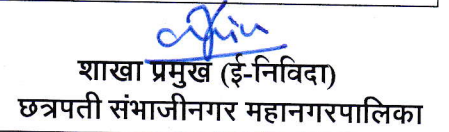 शाखा प्रमुख (ई-निविदा)
छत्रपती संभाजीनगर महानगरपालिका